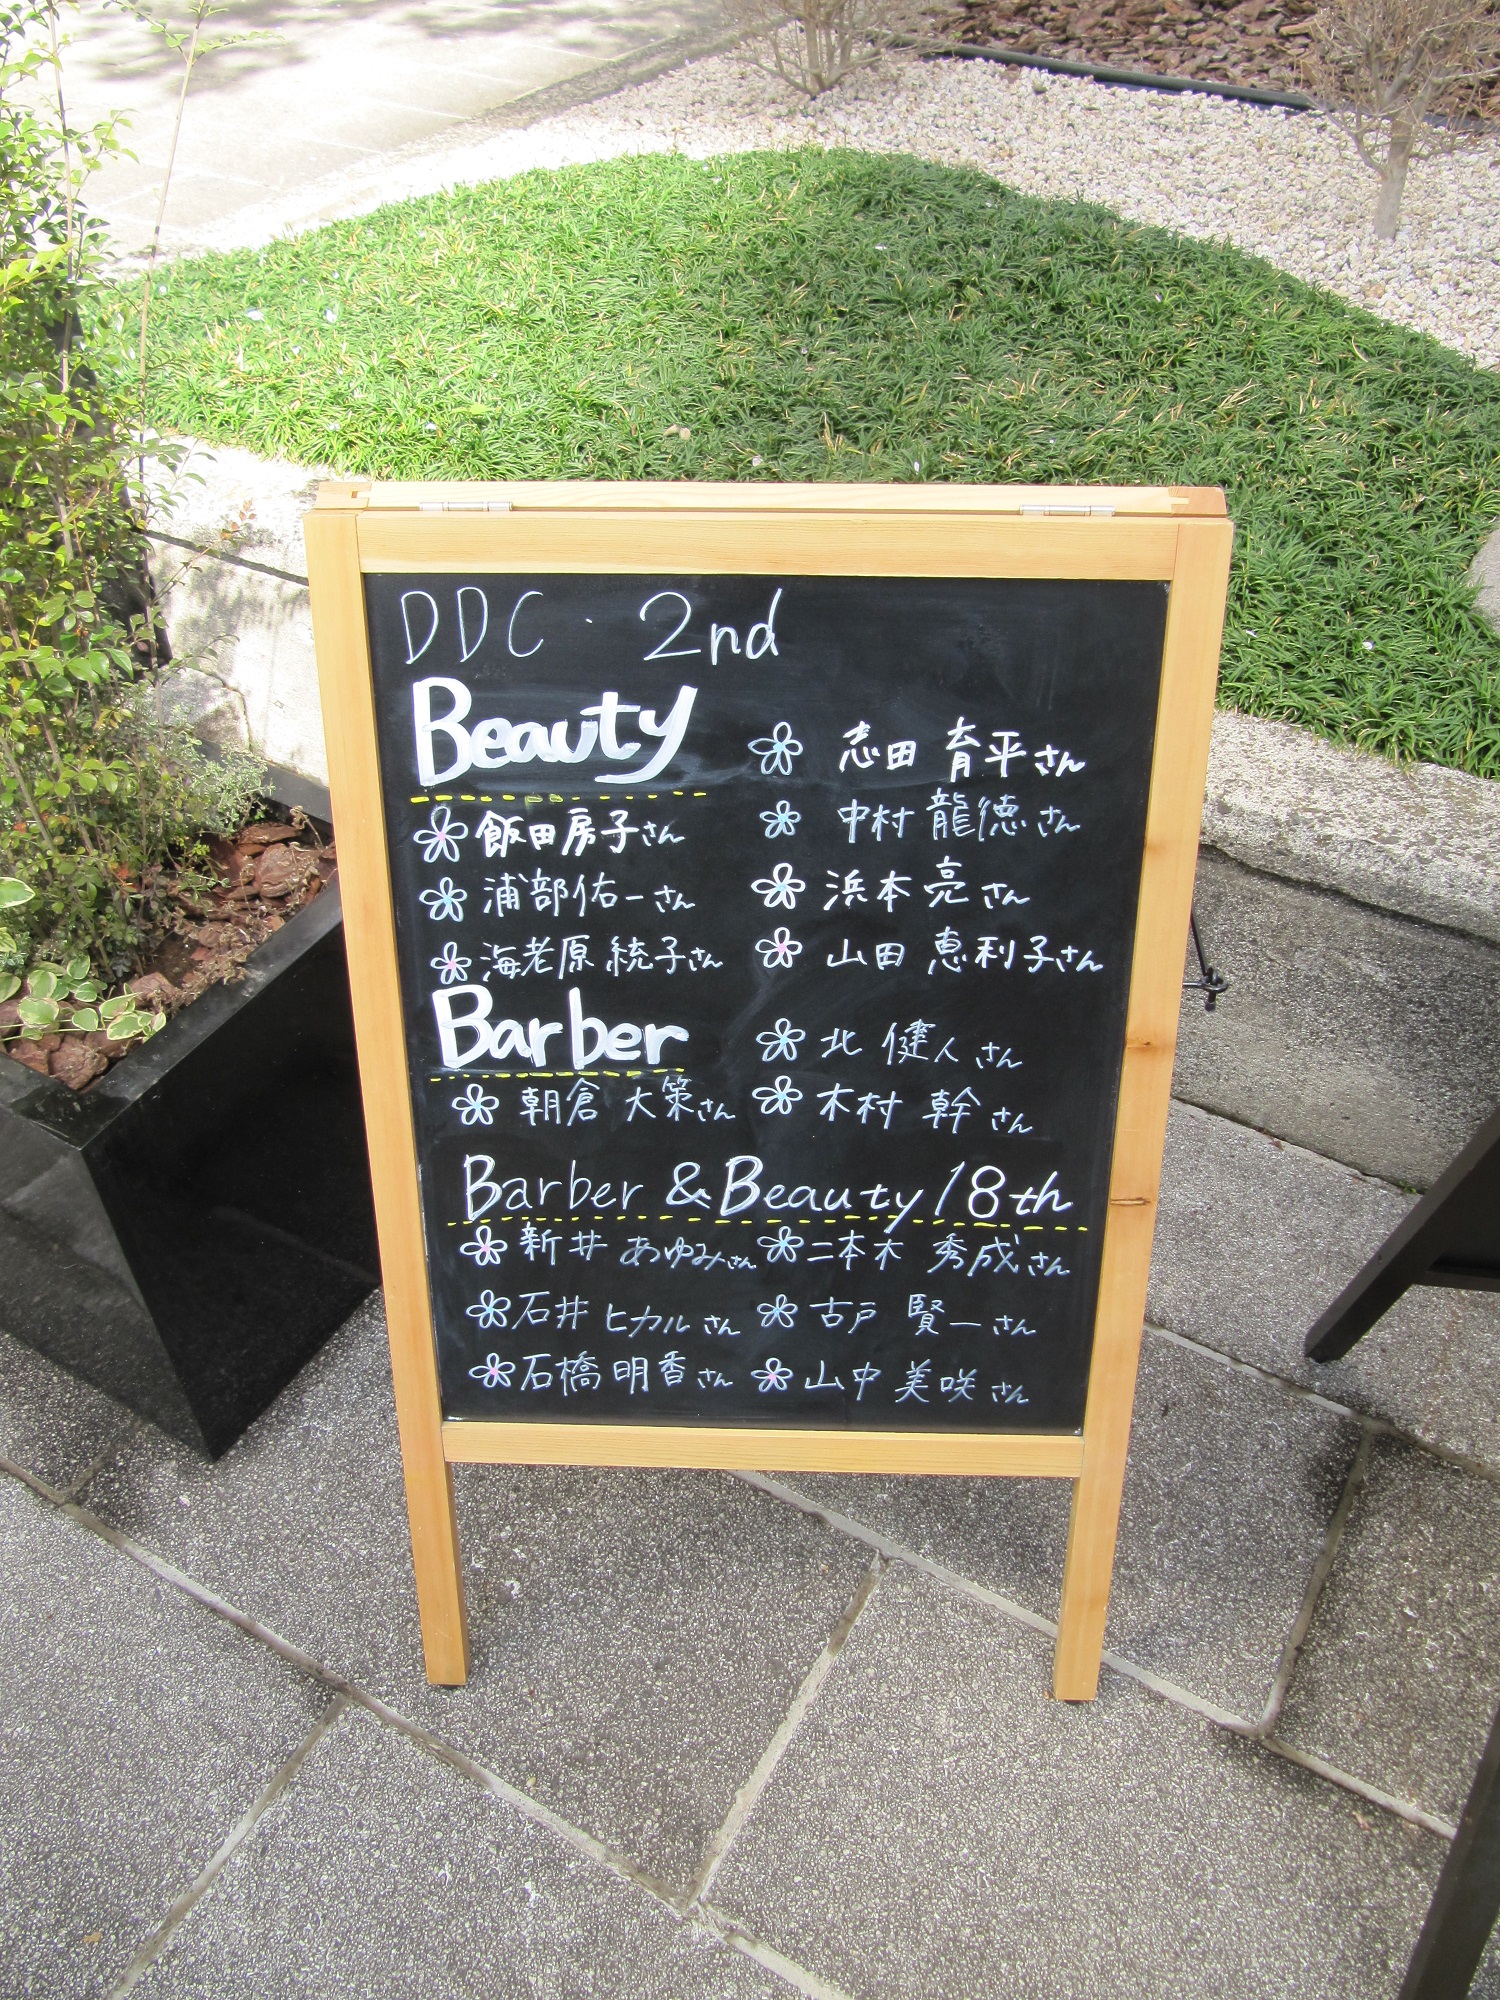 DDC 2nd
Beauty
飯田房子さん
浦部佑一さん
海老原統子さん
志田 育平さん
中村 龍徳さん
浜本 亮さん
山田 恵利子さん
Barber
朝倉 大策さん
北 健人さん
木村 幹さん
Barber & Beauty/18th
新井 あゆみさん
石井 ヒカルさん
石橋 明香さん
二本木 秀成さん
古戸 賢一さん
山中 美咲さん